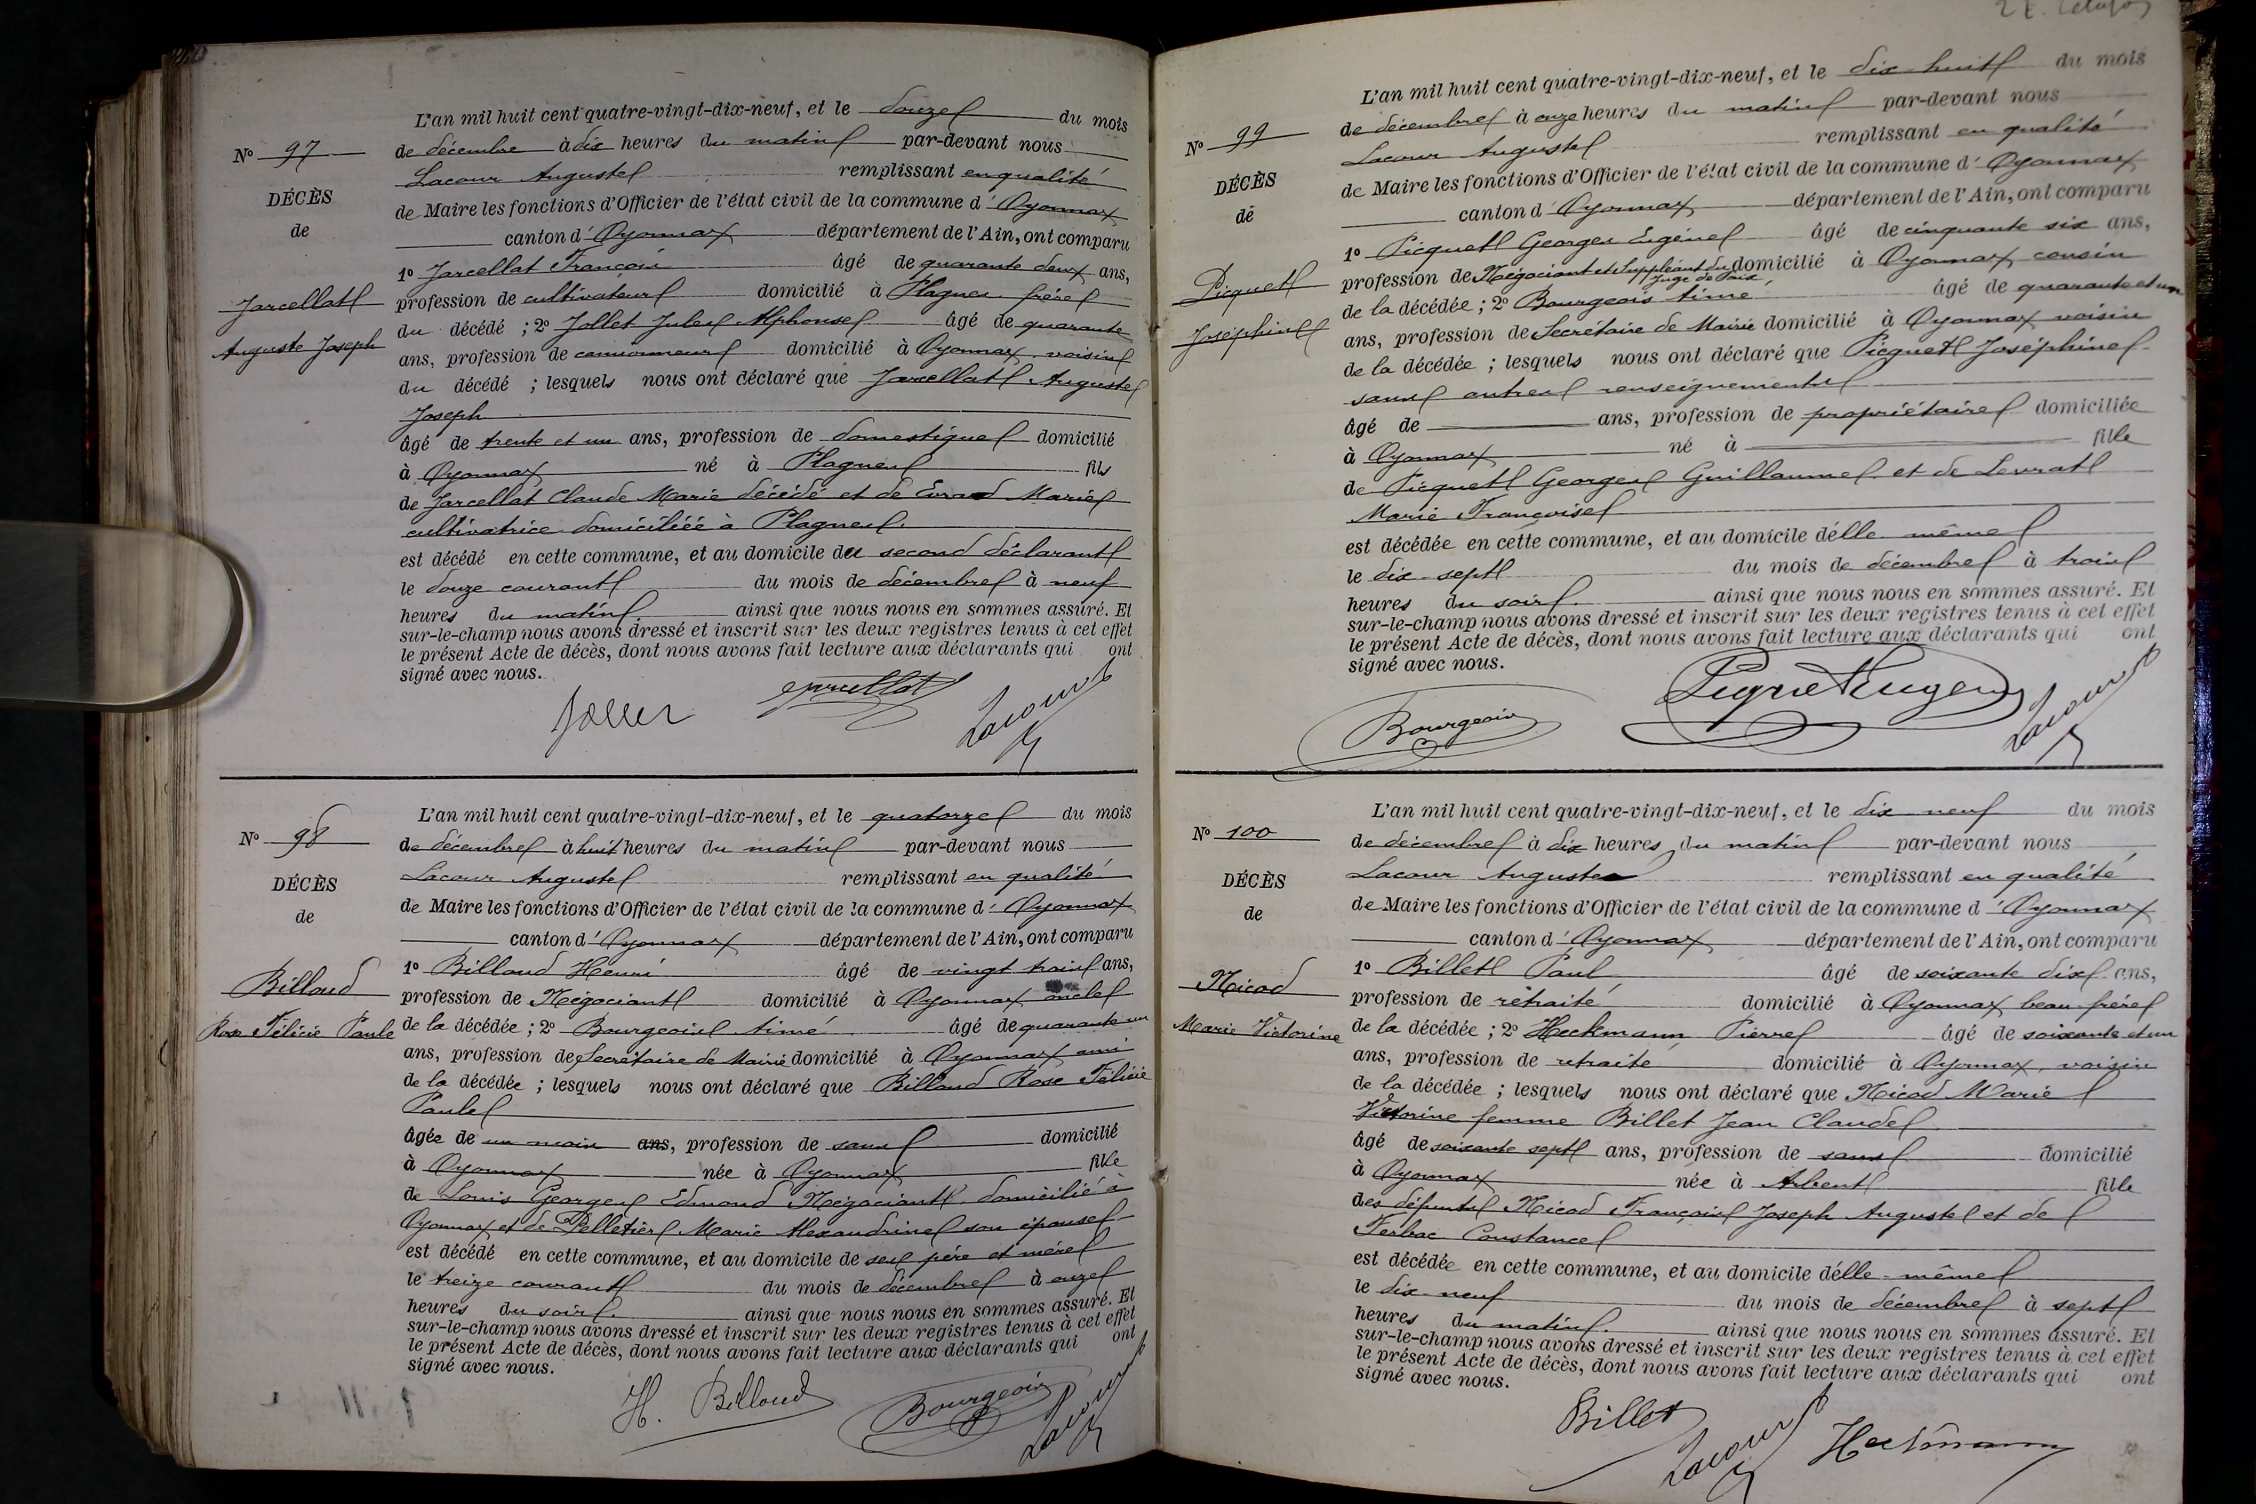 L'an mil huit cent quatre-vingt-dix-neuf, et le douze du mois
N° 97
de décembre à dix heures du matin par-devant nous
Lacour Auguste remplissant en qualité
DÉCÈS
de Maire les fonctions d'Officier de l'état civil de la commune d'Oyonnax
de
canton d'Oyonnax département de l'Ain, ont comparu
1° Jarcellat François âgé de quarante deux ans,
Jarcellat
profession de cultivateur domicilié à Plagnes frère
Auguste Joseph
du décédé ; 2° Jollet Jules Alphonse âgé de quarante
ans, profession de camionneur domicilié à Oyonnax voisin
du décédé ; lesquels nous ont déclaré que Jarcellat Auguste
Joseph
âgé de trente et un ans, profession de domestique domicilié
à Oyonnax né à Plagnes fils
de Jarcellat Claude Marie décédé et de Evrard Marie
cultivatrice domiciliéé à Plagnes.
est décédé en cette commune, et au domicile du second déclarant
le douze courant du mois de décembre à neuf
heures du matin. ainsi que nous nous en sommes assuré. Et
sur-le-champ nous avons dressé et inscrit sur les deux registres tenus à cet effet
le présent Acte de décès, dont nous avons fait lecture aux déclarants qui ont
signé avec nous.
Jarcellat
Lacour
L'an mil huit cent quatre-vingt-dix-neuf, et le quatorze du mois
N° 98
de décembre à huit heures du matin par-devant nous
Lacour Auguste remplissant en qualité
DÉCÈS
de Maire les fonctions d'Officier de l'état civil de la commune d'Oyonnax
de
canton d'Oyonnax département de l'Ain, ont comparu
1° Billoud Henri âgé de vingt trois ans,
Billoud
profession de Négociant domicilié à Oyonnax oncle
Rose Félicie Paule
de la décédée ; 2° Bourgeois Aimé âgé de quarante un
ans, profession de Secrétaire de Mairie domicilié à Oyonnax ami
de la décédée ; lesquels nous ont déclaré que Billoud Rose Félicie
Paule
âgée de un mois ans, profession de sans domicilié
à Oyonnax née à Oyonnax fille
de Louis Georges Edmond Négociant domicilié à
Oyonnax et de Pelletier Marie Alexandrine son épouse
est décédé en cette commune, et au domicile de ses père et mère
le treize courant du mois de décembre à onze
heures du soir. ainsi que nous nous en sommes assuré. Et
sur-le-champ nous avons dressé et inscrit sur les deux registres tenus à cet effet
le présent Acte de décès, dont nous avons fait lecture aux déclarants qui ont
signé avec nous.
H. Billoud
Bourgeois
Lacour
L'an mil huit cent quatre-vingt-dix-neuf, et le dix-huit du mois
N° 99
de décembre à onze heures du matin par-devant nous
Lacour Auguste remplissant en qualité
DÉCÈS
de Maire les fonctions d'Officier de l'état civil de la commune d'Oyonnax
de
canton d'Oyonnax département de l'Ain, ont comparu
1° Picquet Georges Eugène âgé de cinquante six ans,
Picquet
profession de Négociant et Suppléant du Juge de Paix domicilié à Oyonnax cousin
Joséphine
de la décédée ; 2° Bourgeois Aimé âgé de quarante et un
ans, profession de Secrétaire de Mairie domicilié à Oyonnax voisin
de la décédée ; lesquels nous ont déclaré que Picquet Joséphine
sans autres renseignements
âgé de ans, profession de propriétaire domiciliée
à Oyonnax né à fille
de Picquet Georges Guillaume et de Levrat
Marie Françoise
est décédée en cette commune, et au domicile d'élle-même
le dix-sept du mois de décembre à trois
heures du soir. ainsi que nous nous en sommes assuré. Et
sur-le-champ nous avons dressé et inscrit sur les deux registres tenus à cet effet
le présent Acte de décès, dont nous avons fait lecture aux déclarants qui ont
signé avec nous.
Picquet Eugène
Bourgeois
Lacour
L'an mil huit cent quatre-vingt-dix-neuf, et le dix neuf du mois
N° 100
de décembre à dix heures du matin par-devant nous
Lacour Auguste remplissant en qualité
DÉCÈS
de Maire les fonctions d'Officier de l'état civil de la commune d'Oyonnax
de
canton d'Oyonnax département de l'Ain, ont comparu
1° Billet Paul âgé de soixante dix ans,
Nicod
profession de retraité domicilié à Oyonnax beau-frère
Marie Victorine
de la décédée ; 2° Heckmann Pierre âgé de soixante et un
ans, profession de retraité domicilié à Oyonnax, voisin
de la décédée ; lesquels nous ont déclaré que Nicod Marie
Victorine femme Billet Jean Claude
âgé de soixante sept ans, profession de sans domicilié
à Oyonnax née à Arbent fille
des défunts Nicod François Joseph Auguste et de
Constance
est décédée en cette commune, et au domicile d'élle-même
le dix-neuf du mois de décembre à sept
heures du matin. ainsi que nous nous en sommes assuré. Et
sur-le-champ nous avons dressé et inscrit sur les deux registres tenus à cet effet
le présent Acte de décès, dont nous avons fait lecture aux déclarants qui ont
signé avec nous.
Billet
Lacour
Heckmann